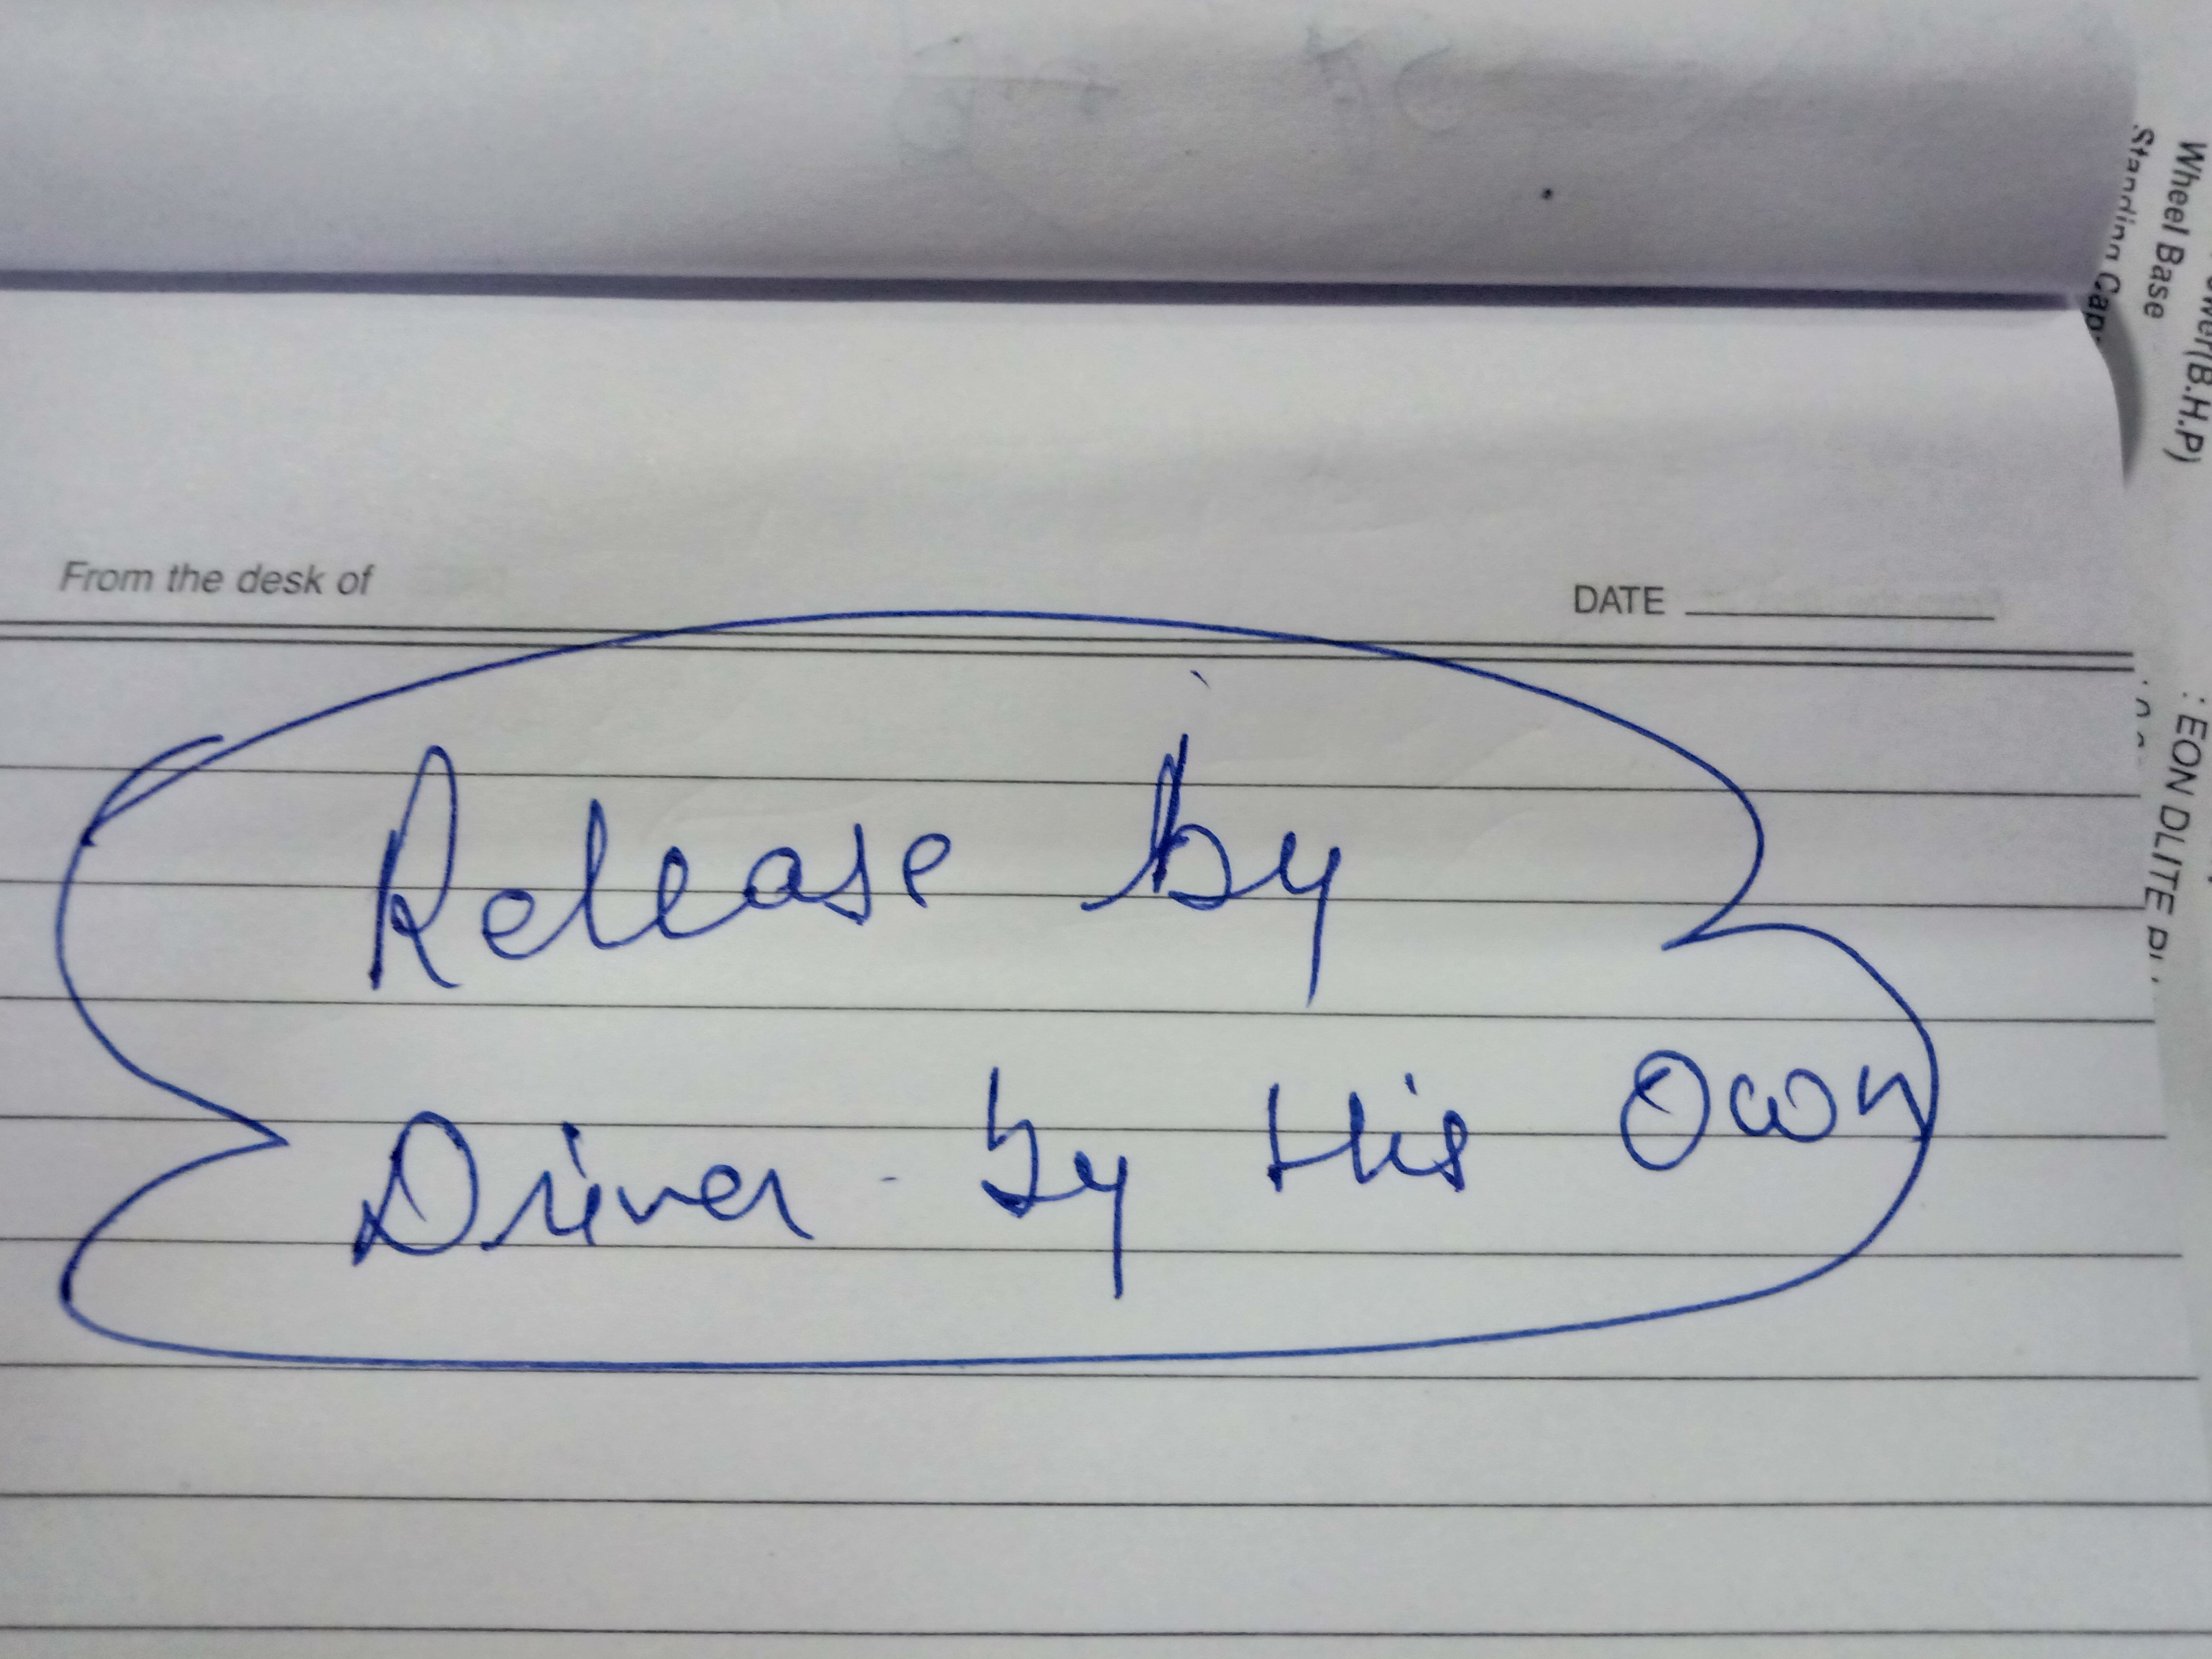 From the desk of
DATE
Release by
Driver - by His Own
Wheel Base
: EON DLITE